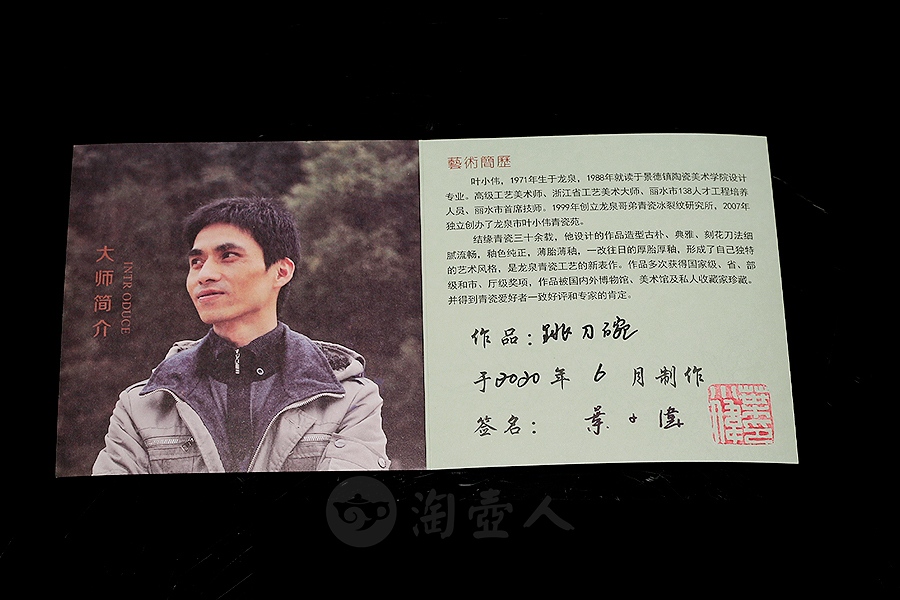 大师简介
INTRODUCE
藝術簡歷
叶小伟，1971年生于龙泉，1988年就读于景德镇陶瓷美术学院设计
专业。高级工艺美术师、浙江省工艺美术大师、丽水市138人才工程培养
人员、丽水市首席技师。1999年创立龙泉哥弟青瓷冰裂纹研究所，2007年
独立创办了龙泉市叶小伟青瓷苑。
结缘青瓷三十余载，他设计的作品造型古朴、典雅、刻花刀法细
腻流畅，釉色纯正，薄胎薄釉，一改往日的厚胎厚釉，形成了自己独特
的艺术风格，是龙泉青瓷工艺的新表作。作品多次获得国家级、省、部
级和市、厅级奖项，作品被国内外博物馆、美术馆及私人收藏家珍藏。
并得到青瓷爱好者一致好评和专家的肯定。
作品：跳刀碗
于2020年 6 月制作
签名： 葉小偉
淘壶人